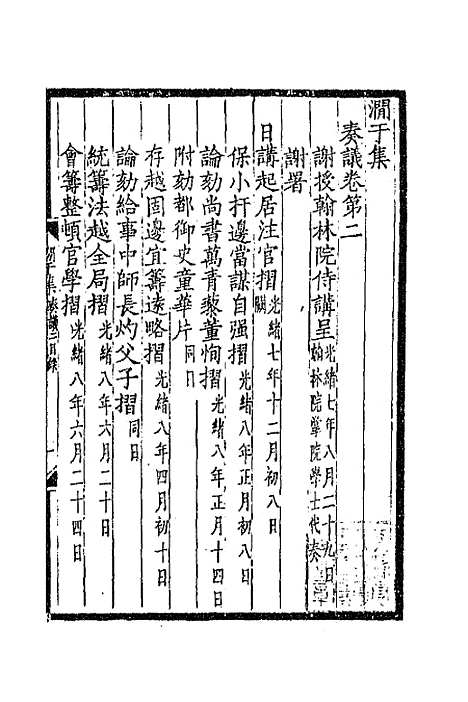 澗于集
奏議卷第二
謝授翰林院侍講呈光緒七年八月二十九日翰林院掌院學士代奏
謝署
日講起居注官摺光緒七年十二月初八日
保小扞邊當謀自强摺光緒八年正月初八日
論劾尚書萬青藜董恂摺光緒八年正月十四日
附劾都御史童華片同日
存越固邊宜籌遠略摺光緒八年四月初十日
論劾給事中師長灼父子摺同日
統籌法越全局摺光緒八年六月二十日
會籌整頓官學摺光緒八年六月二十四日
澗于集奏議二目錄
一